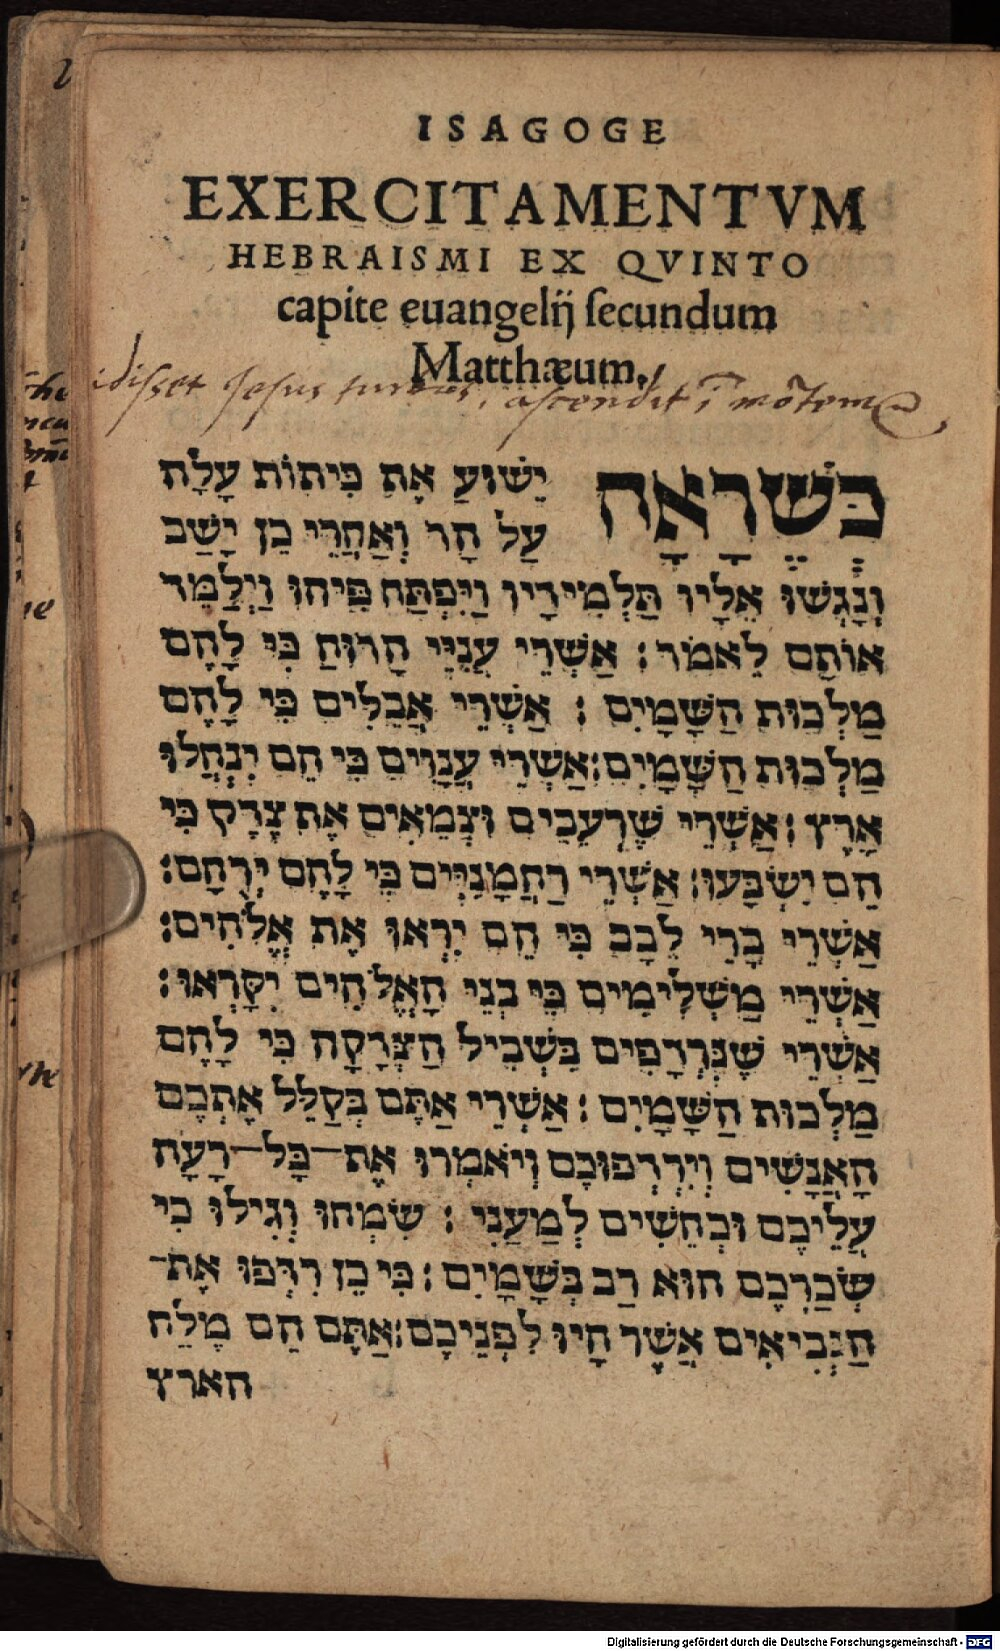 ISAGOGE
EXERCITAMENTVM
HEBRAISMI EX QVINTO
capite euangelij secundum
Matthæum.
idisset Jesus turbas, ascendit ī mōtem
כְּשֶׁרָאָה יֵשׁוּעַ אֶת כִּיתוֹת עָלָה
עַל הָר וְאַחֲרֵי כֵן יָשַׁב
וְנָגְשׁוּ אֵלָיו תַּלְמִידָיו וַיִּפְתַּח פִּיהוּ וַיְלַמֵּד
אוֹתָם לֵאמֹר : אַשְׁרֵי עֲנִיֵּי הָרוּחַ כִּי לָהֶם
מַלְכוּת הַשָּׁמָיִם : אַשְׁרֵי אֲבֵלִים כִּי לָהֶם
מַלְכוּת הַשָּׁמָיִם : אַשְׁרֵי עֲנָוִים כִּי הֵם יִנְחֲלוּ
אָרֶץ : אַשְׁרֵי שֶׁרְעֵבִים וּצְמֵאִים אֶת צֶדֶק כִּי
הֵם יִשְׂבָּעוּ : אַשְׁרֵי רַחֲמָנִיִּים כִּי לָהֶם יְרֻחָם :
אַשְׁרֵי בָרֵי לֵבָב כִּי הֵם יִרְאוּ אֶת אֱלֹהִים :
אַשְׁרֵי מַשְׁלִימִים כִּי בְנֵי הָאֱלֹהִים יִקָּרְאוּ :
אַשְׁרֵי שֶׁנִּרְדָפִים בִּשְׁבִיל הַצְּדָקָה כִּי לָהֶם
מַלְכוּת הַשָּׁמָיִם : אַשְׁרֵי אַתֶּם בְּקַלֵּל אֶתְכֶם
הָאֲנָשִׁים וְיִרְדְּפוּכֶם וְיֹאמְרוּ אֶת־כָּל־רָעָה
עֲלֵיכֶם וּבְחֵשִׁים לְמַעֲנִי : שִׂמְחוּ וְגִילוּ כִּי
שְׂכַרְכֶם הוּא רַב בְּשָׁמָיִם : כִּי כֵן רִדְּפוּ אֶת־
הַנְּבִיאִים אֲשֶׁר הָיוּ לִפְנֵיכֶם : אַתֶּם הֵם מֶלַח
הארץ
Digitalisierung gefördert durch die Deutsche Forschungsgemeinschaft - DFG